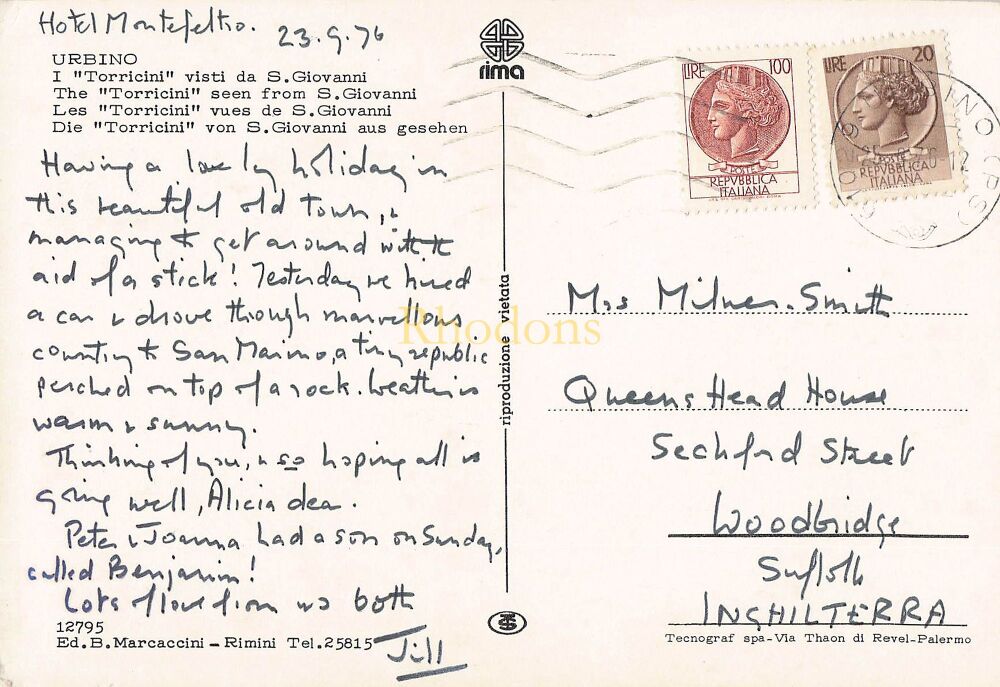 Hotel Montefeltro. 23.9.76
URBINO
I "Torricini" visti da S.Giovanni
The "Torricini" seen from S.Giovanni
Les "Torricini" vues de S.Giovanni
Die "Torricini" von S.Giovanni aus gesehen
Having a lovely holiday in
this beautiful old town, &
managing to get around with the
aid of a stick! Yesterday we hired
a car & drove through marvellous
country to San Marino, a tiny republic
perched on top of a rock. Weather is
warm & sunny.
Thinking of you, & so hoping all is
going well, Alicia dear.
Peter & Joanna had a son on Sunday,
called Benjamin!
Lots of love from us both
Jill
12795
Ed.B.Marcaccini-Rimini Tel.25815
rima
riproduzione vietata
LIRE 100
POSTE
REPVBBLICA
ITALIANA
LIRE 20
POSTE
REPVBBLICA
ITALIANA
Mrs Milner-Smith
Queens Head House
Seckford Street
Woodbridge
Suffolk
INGHILTERRA
Tecnograf spa-Via Thaon di Revel-Palermo
Rhodons